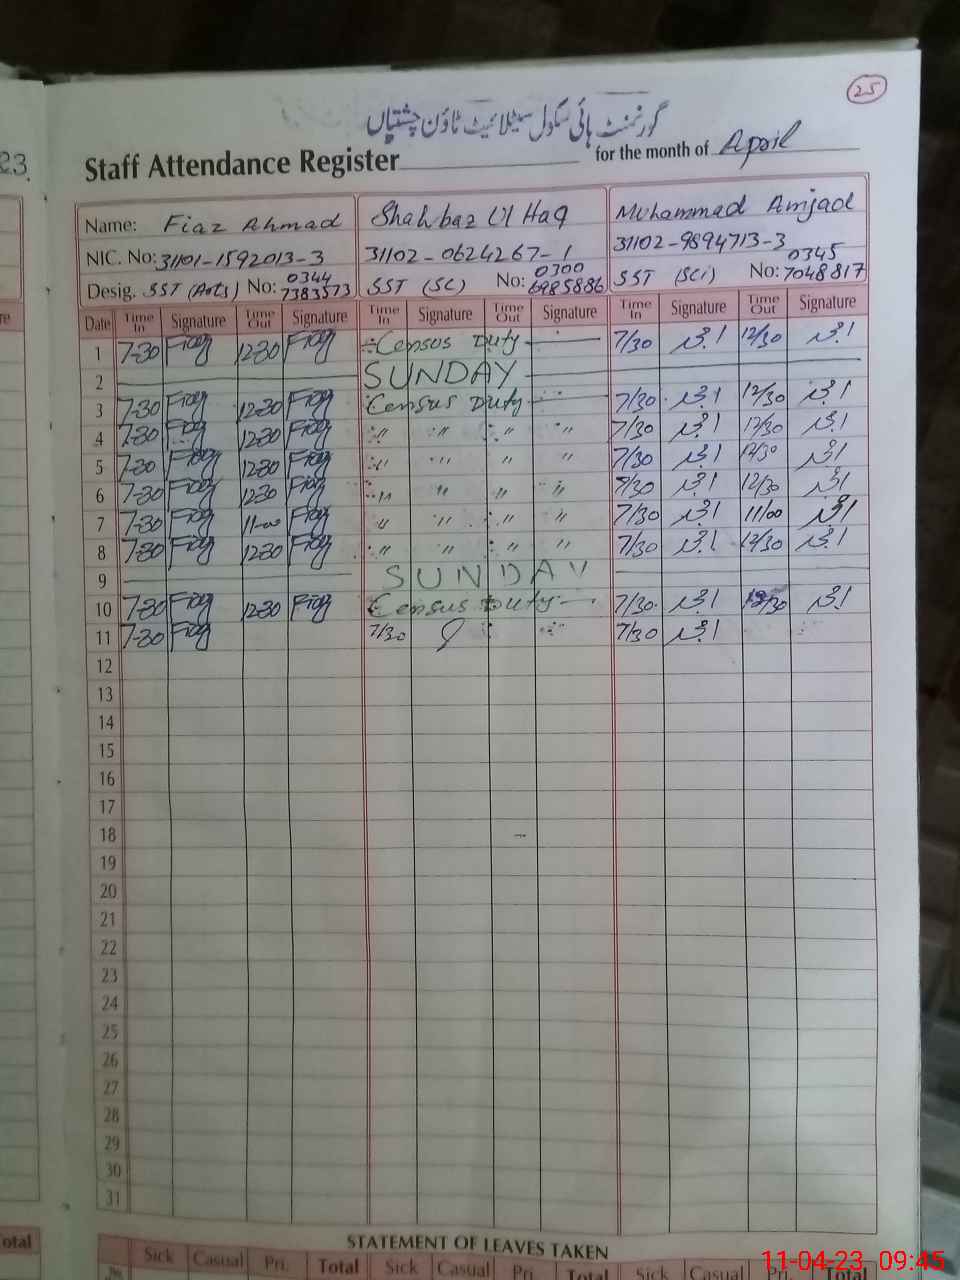 25
گورنمنٹ ہائی سکول سیٹلائیٹ ٹاؤن چشتیاں
23
Staff Attendance Register for the month of April
Name: Fiaz Ahmad Shahbaz Ul Haq Muhammad Amjad
NIC. No: 31101-1592013-3 31102-0624267-1 31102-9894713-3
Desig. SST (Arts) No: 0344 7383573 SST (SC) No: 0300 6985886 SST (SCi) No: 0345 7048817
Date Time In Signature Time Out Signature Time In Signature Time Out Signature Time In Signature Time Out Signature
1 7-30 Fiaz 12-30 Fiaz Census Duty 7/30 12/30
2 SUNDAY
3 7-30 Fiaz 12-30 Fiaz Census Duty 7/30 12/30
4 7-30 Fiaz 12-30 Fiaz " " " " 7/30 12/30
5 7-30 Fiaz 12-30 Fiaz " " " " 7/30 12/30
6 7-30 Fiaz 12-30 Fiaz " " " " 7/30 12/30
7 7-30 Fiaz 11-00 Fiaz " " " " 7/30 11/00
8 7-30 Fiaz 12-30 Fiaz " " " " 7/30 12/30
9 SUNDAY
10 7-30 Fiaz 12-30 Fiaz Census Duty 7/30 12/30
11 7-30 Fiaz 7/30 7/30
12
13
14
15
16
17
18
19
20
21
22
23
24
25
26
27
28
29
30
31
STATEMENT OF LEAVES TAKEN
Total Sick Casual Pri. Total Sick Casual Pri. Total Sick Casual Pri. Total
11-04-23 09:45